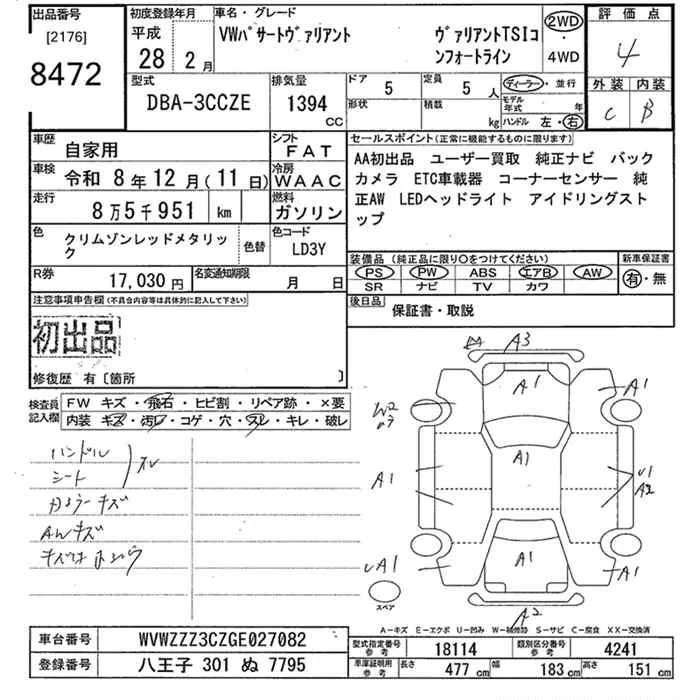 出品番号
[2176]
8472
初度登録年月
平成
28 2月
車名・グレード
VWパサートヴァリアント ヴァリアントTSIコ
ンフォートライン
2WD
・
4WD
評価点
4
外装 内装
C B
型式
DBA-3CCZE
排気量
1394
CC
ドア 5
定員 5人
形状
積載 kg
ディーラー・並行
モデル
年式 年
ハンドル 左・右
車歴 自家用
シフト FAT
車検 令和 8年12月(11日)
冷房 WAAC
走行 8万5千951 km
燃料 ガソリン
色 クリムゾンレッドメタリッ
ク
色替
色コード
LD3Y
R券 17,030円
名変通知期限 月 日
セールスポイント(正常に機能するものに限ります)
AA初出品 ユーザー買取 純正ナビ バック
カメラ ETC車載器 コーナーセンサー 純
正AW LEDヘッドライト アイドリングスト
ップ
装備品(純正品に限り○をつけてください)
PS PW ABS エアB AW
SR ナビ TV カワ
新車保証書
有・無
後日品 保証書・取説
注意事項申告欄(不具合内容等は具体的に記入して下さい)
初出品
修復歴 有〔箇所 〕
検査員
記入欄
FW キズ・飛石・ヒビ割・リペア跡・×要
内装 キズ・汚レ・コゲ・穴・スレ・キレ・破レ
ハンドル
シート
スレ
AWキズ
A3
A1
A1
W2
A1
A1
U1
A2
A1
A1
UA1
A2
スペア
A-キズ E-エクボ U-凹み W-補修跡 S-サビ C-腐食 XX-交換済
車台番号 WVWZZZ3CZGE027082
登録番号 八王子 301 ぬ 7795
型式指定番号
参考
18114
類別区分番号
参考
4241
車庫証明用
参考
長さ 477cm 幅 183cm 高さ 151cm